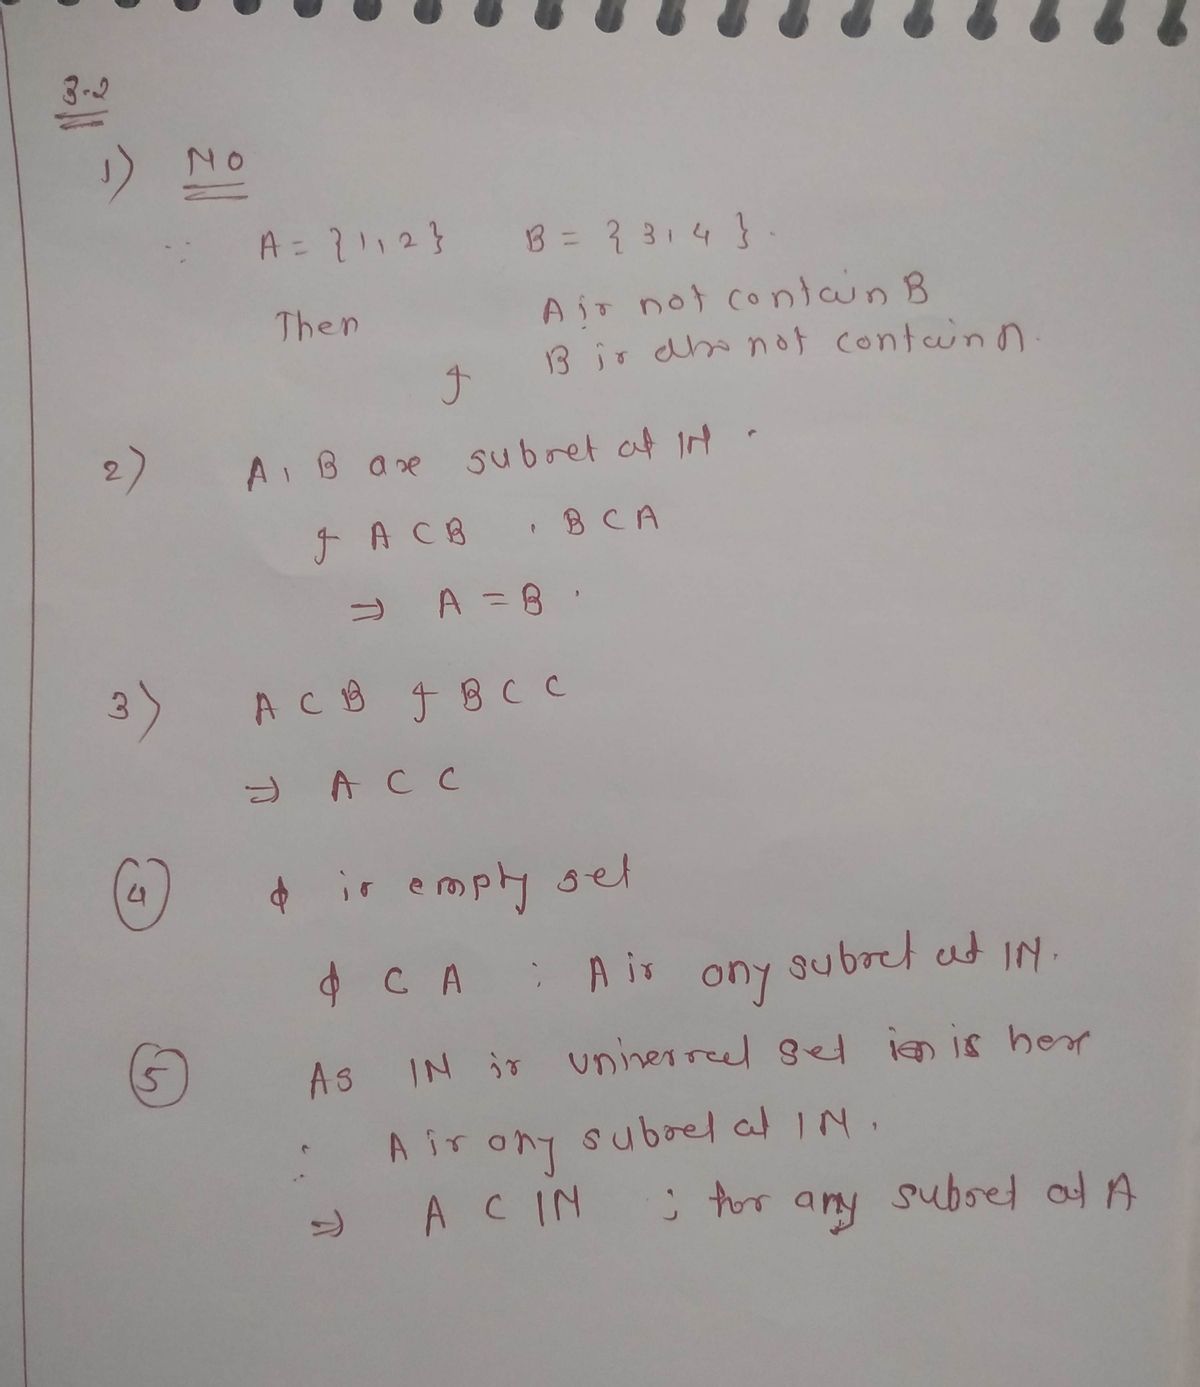 3.2
1) NO
∵ A = {1,2} B = {3,4}.
Then A is not contain B
& B is also not contain A.
2) A, B are subset of IN.
& A ⊂ B, B ⊂ A
⇒ A = B.
3) A ⊂ B & B ⊂ C
⇒ A ⊂ C
4 ϕ is empty set
ϕ ⊂ A ; A is any subset of IN.
5 As IN is universal set is here
∴ A is any subset of IN.
⇒ A ⊂ IN ; for any subset of A